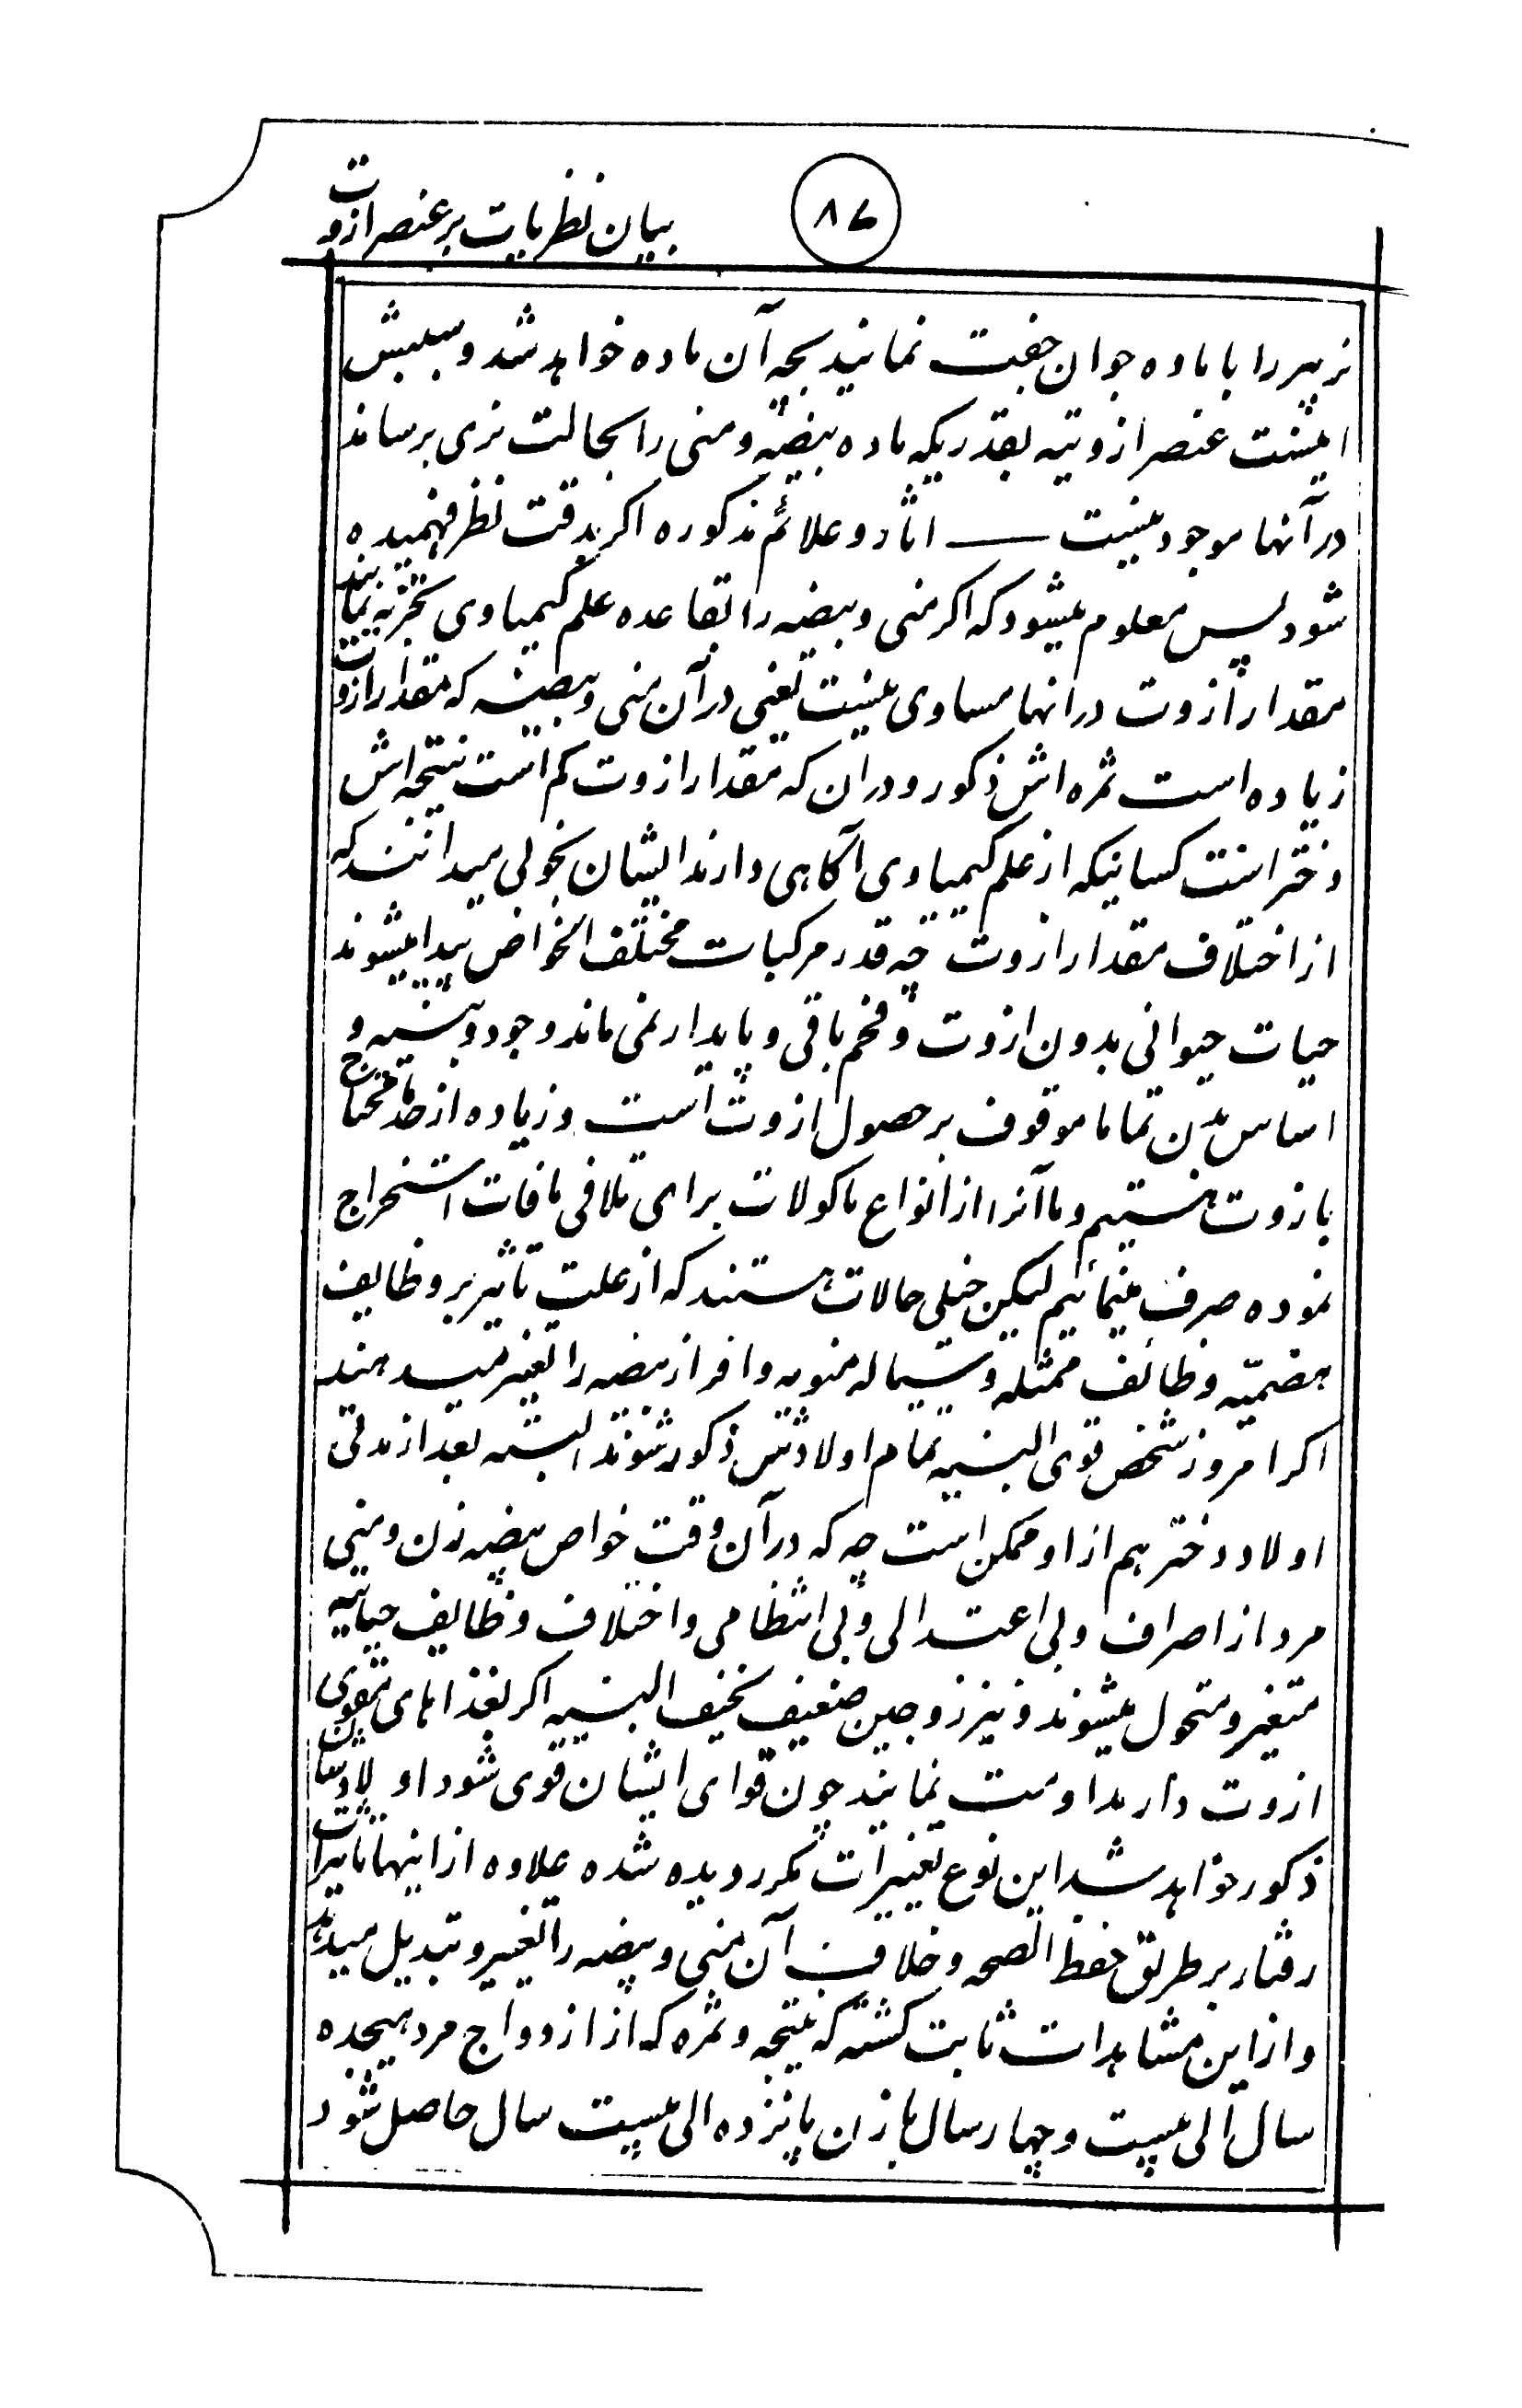 بیان نظریات بر عنصر ازوت
۸۶
نر پیر را با ماده جوان جفت نمایند بچه آن ماده خواهد شد و سببش
اینست عنصر ازوتیه بقدریکه ماده بیضیّه و منی را بحالت نری برساند
در آنها موجود نیست — اثار و علائم مذکوره اکر بدقت نظر فهمیده
شود پس معلوم میشود که اکر منی و بیضه را بقاعده علم کیمیاوی تجزیه نمایند
مقدار ازوت در انها مساوی نیست یعنی در آن منی و بیضه که مقدار ازوت
زیاده است ثمره اش ذکور و دران که مقدار ازوت کم است نتیجه اش
دختر است کسانیکه از علم کیمیاوی آکاهی دارند ایشان بخوبی میدانند که
از اختلاف مقدار ازوت چه قدر مرکبات مختلف الخواص پیدا میشوند
حیات حیوانی بدون ازوت و فحم باقی و پایدار نمی ماند وجود و بنیه و
اساس بدن تماما موقوف بر حصول ازوت است و زیاده از حد محتاج
بازوت هستیم و ما آنرا از انواع ماکولات برای تلافی مافات استخراج
نموده صرف مینمائیم لیکن خیلی حالات هستند که از علت تاثیر بر وظایف
هضمیّه وظائف ممثله و سیاله منویه و افراز بیضه را تغییر میدهند
اکر امروز شخص قوی البنیه تمام اولادش ذکور شوند البته بعد از مدتی
اولاد دختر هم از او ممکن است چه که در آن وقت خواص بیضه زن و منی
مرد از اصراف و بی اعتدالی و بی انتظامی و اختلاف وظایف حیاتیه
متغیر و متحول میشوند و نیز زوجین ضعیف نخیف البنیه اکر بغذاهای مقوی
ازوت دار مداومت نمایند چون قوای ایشان قوی شود اولادشان
ذکور خواهد شد این نوع تغییرات مکرر دیده شده علاوه از اینها تاثیرات
رفتار بر طریق حفظ الصحه و خلاف آن منی و بیضه را تغییر و تبدیل میدهد
و از این مشاهدات ثابت کشته که نتیجه و ثمره که از ازدواج مرد هیجده
سال الی بیست و چهار سال با زن پانزده الی بیست سال حاصل شود